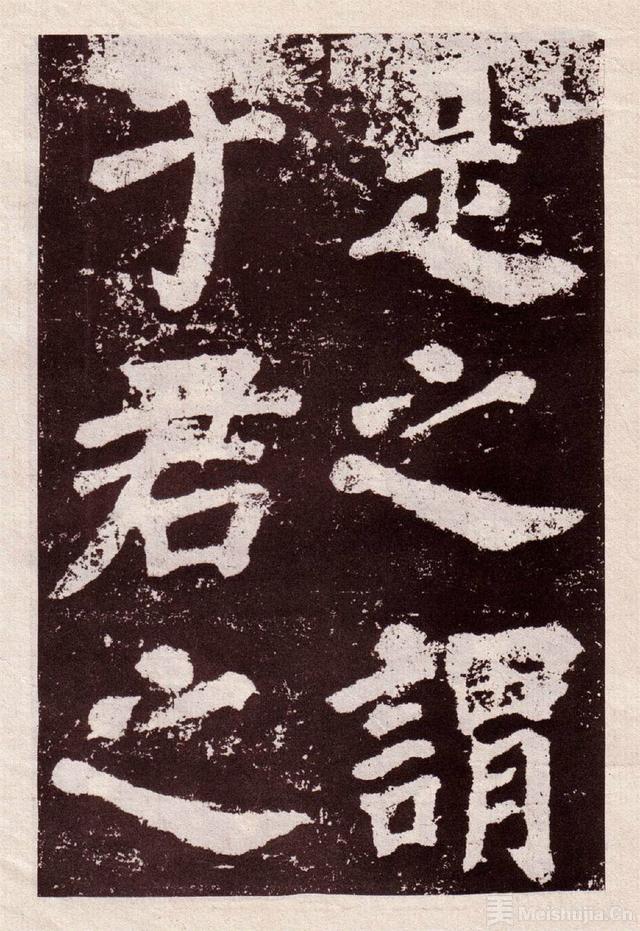 是之謂
于君之
美 Meishujia.Cn